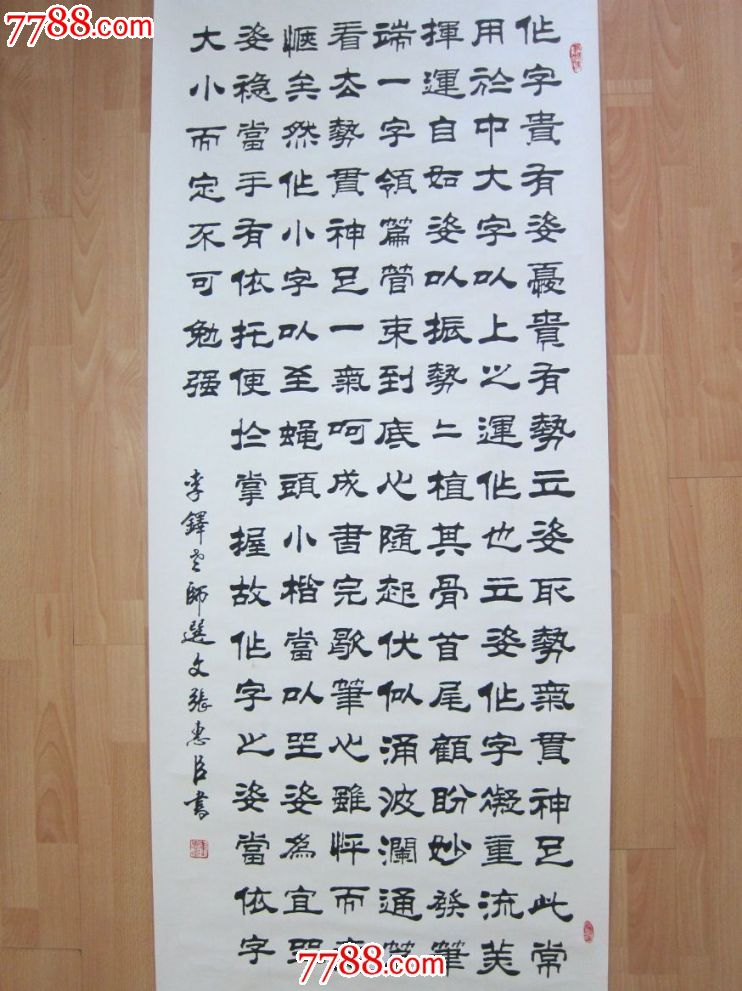 7788.com
作字貴有姿憂貴有勢立姿取勢氣貫神足此常
用於中大字以上之運作也立姿作字凝重流美
揮運自如姿以振勢二植其骨首尾顧盼妙發筆
端一字領篇管束到底心隨起伏似涌波瀾通篇
看去勢貫神足一氣呵成書完歇筆心雖怦而意
愜矣然作小字以至蝇頭小楷當以坐姿為宜坐
姿稳當手有依托便於掌握故作字之姿當依字
大小而定不可勉强
李鐸老師選文張惠臣書
7788.com